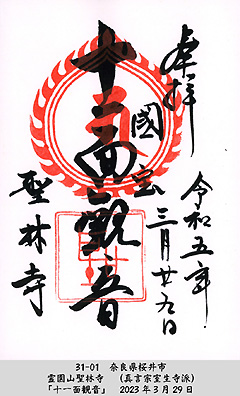 奉拝
令和五年
三月廿九日
國宝
十一面觀音
聖林寺
31-01 奈良県桜井市
霊園山聖林寺 (真言宗室生寺派)
「十一面観音」 2023年3月29日